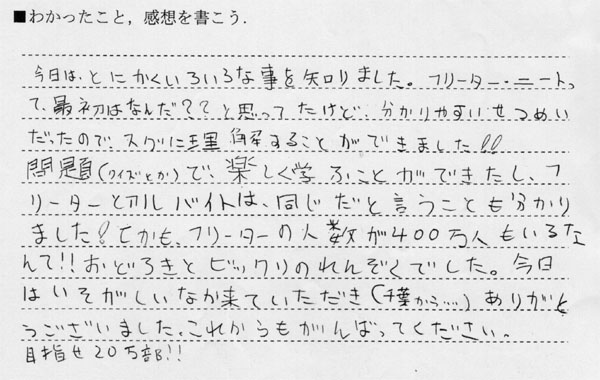 ■わかったこと，感想を書こう．
今日は、とにかくいろいろな事を知りました。フリーター・ニートっ
て、最初はなんだ??と思ってたけど、分かりやすいせつめい
だったので、スグに理解することができました!!
問題(クイズとか)で、楽しく学ぶことができたし、フ
リーターとアルバイトは、同じだと言うことも分かり
ました!しかも、フリーターの人数が400万人もいるな
んて!!おどろきとビックリのれんぞくでした。今日
はいそがしいなか来ていただき(千葉から……)ありがと
うございました。これからもがんばってください。
目指せ20万部!!